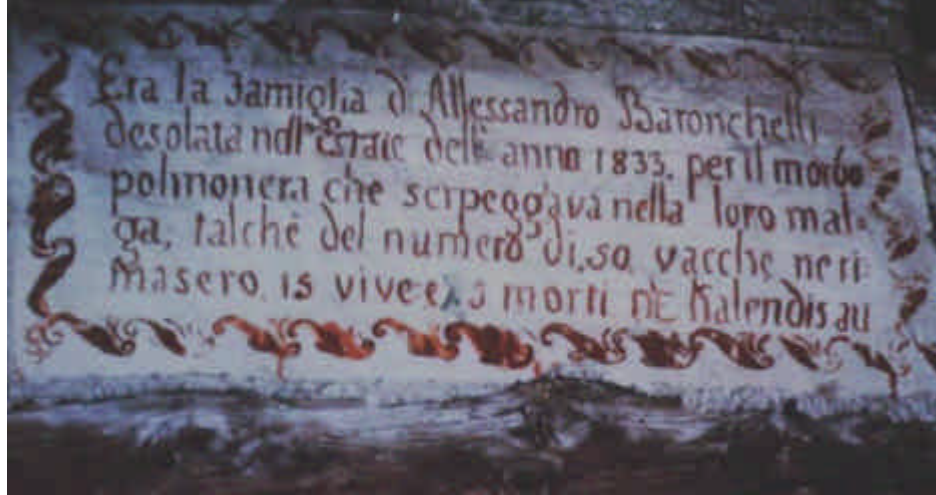 Era la Famiglia d'Allessandro Baronchelli
desolata nell'Estate dell'anno 1833. per il morbo
polmonera che serpeggiava nella loro mal=
ga, talchè del numero di. 50 vacche ne ri=
masero. 15 vive e morti Kalendis au